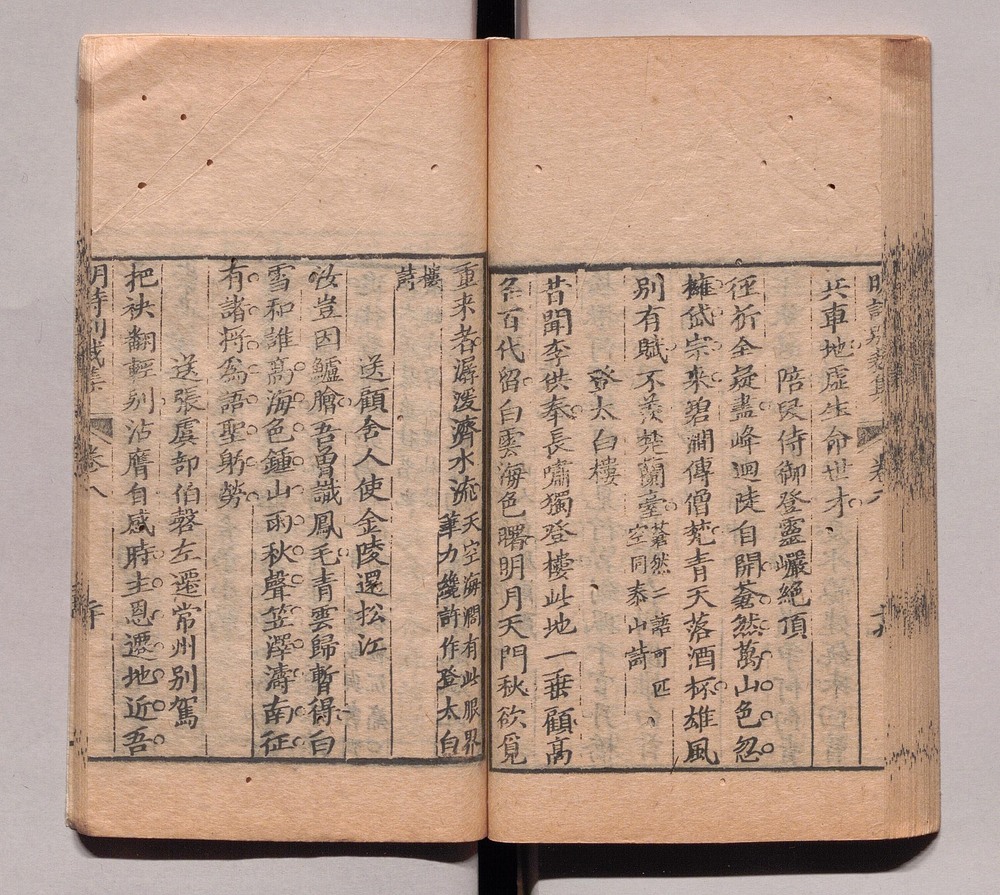 明詩別裁集 卷八
兵車地虛生命世才
陪段侍御登靈巖絶頂
徑折全疑盡峰迴陡自開蒼然萬山色忽
擁岱宗來碧澗傳僧梵青天落酒杯雄風
別有賦不羨楚蘭臺
蒼然二語可匹
空同泰山詩
登太白樓
昔聞李供奉長嘯獨登樓此地一垂顧高
名百代留白雲海色曙明月天門秋欲覓
重來者潺湲濟水流
天空海濶有此服界
筆力纔許作登太白
樓詩
送顧舍人使金陵還松江
汝豈因鱸膾吾曾識鳳毛青雲歸暫得白
雪和誰高海色鍾山雨秋聲笠澤濤南征
有諸將為語聖躬勞
送張虞部伯磬左遷常州別駕
把袂翻輕別沾膺自感時主恩遷地近吾
明詩別裁集 卷八